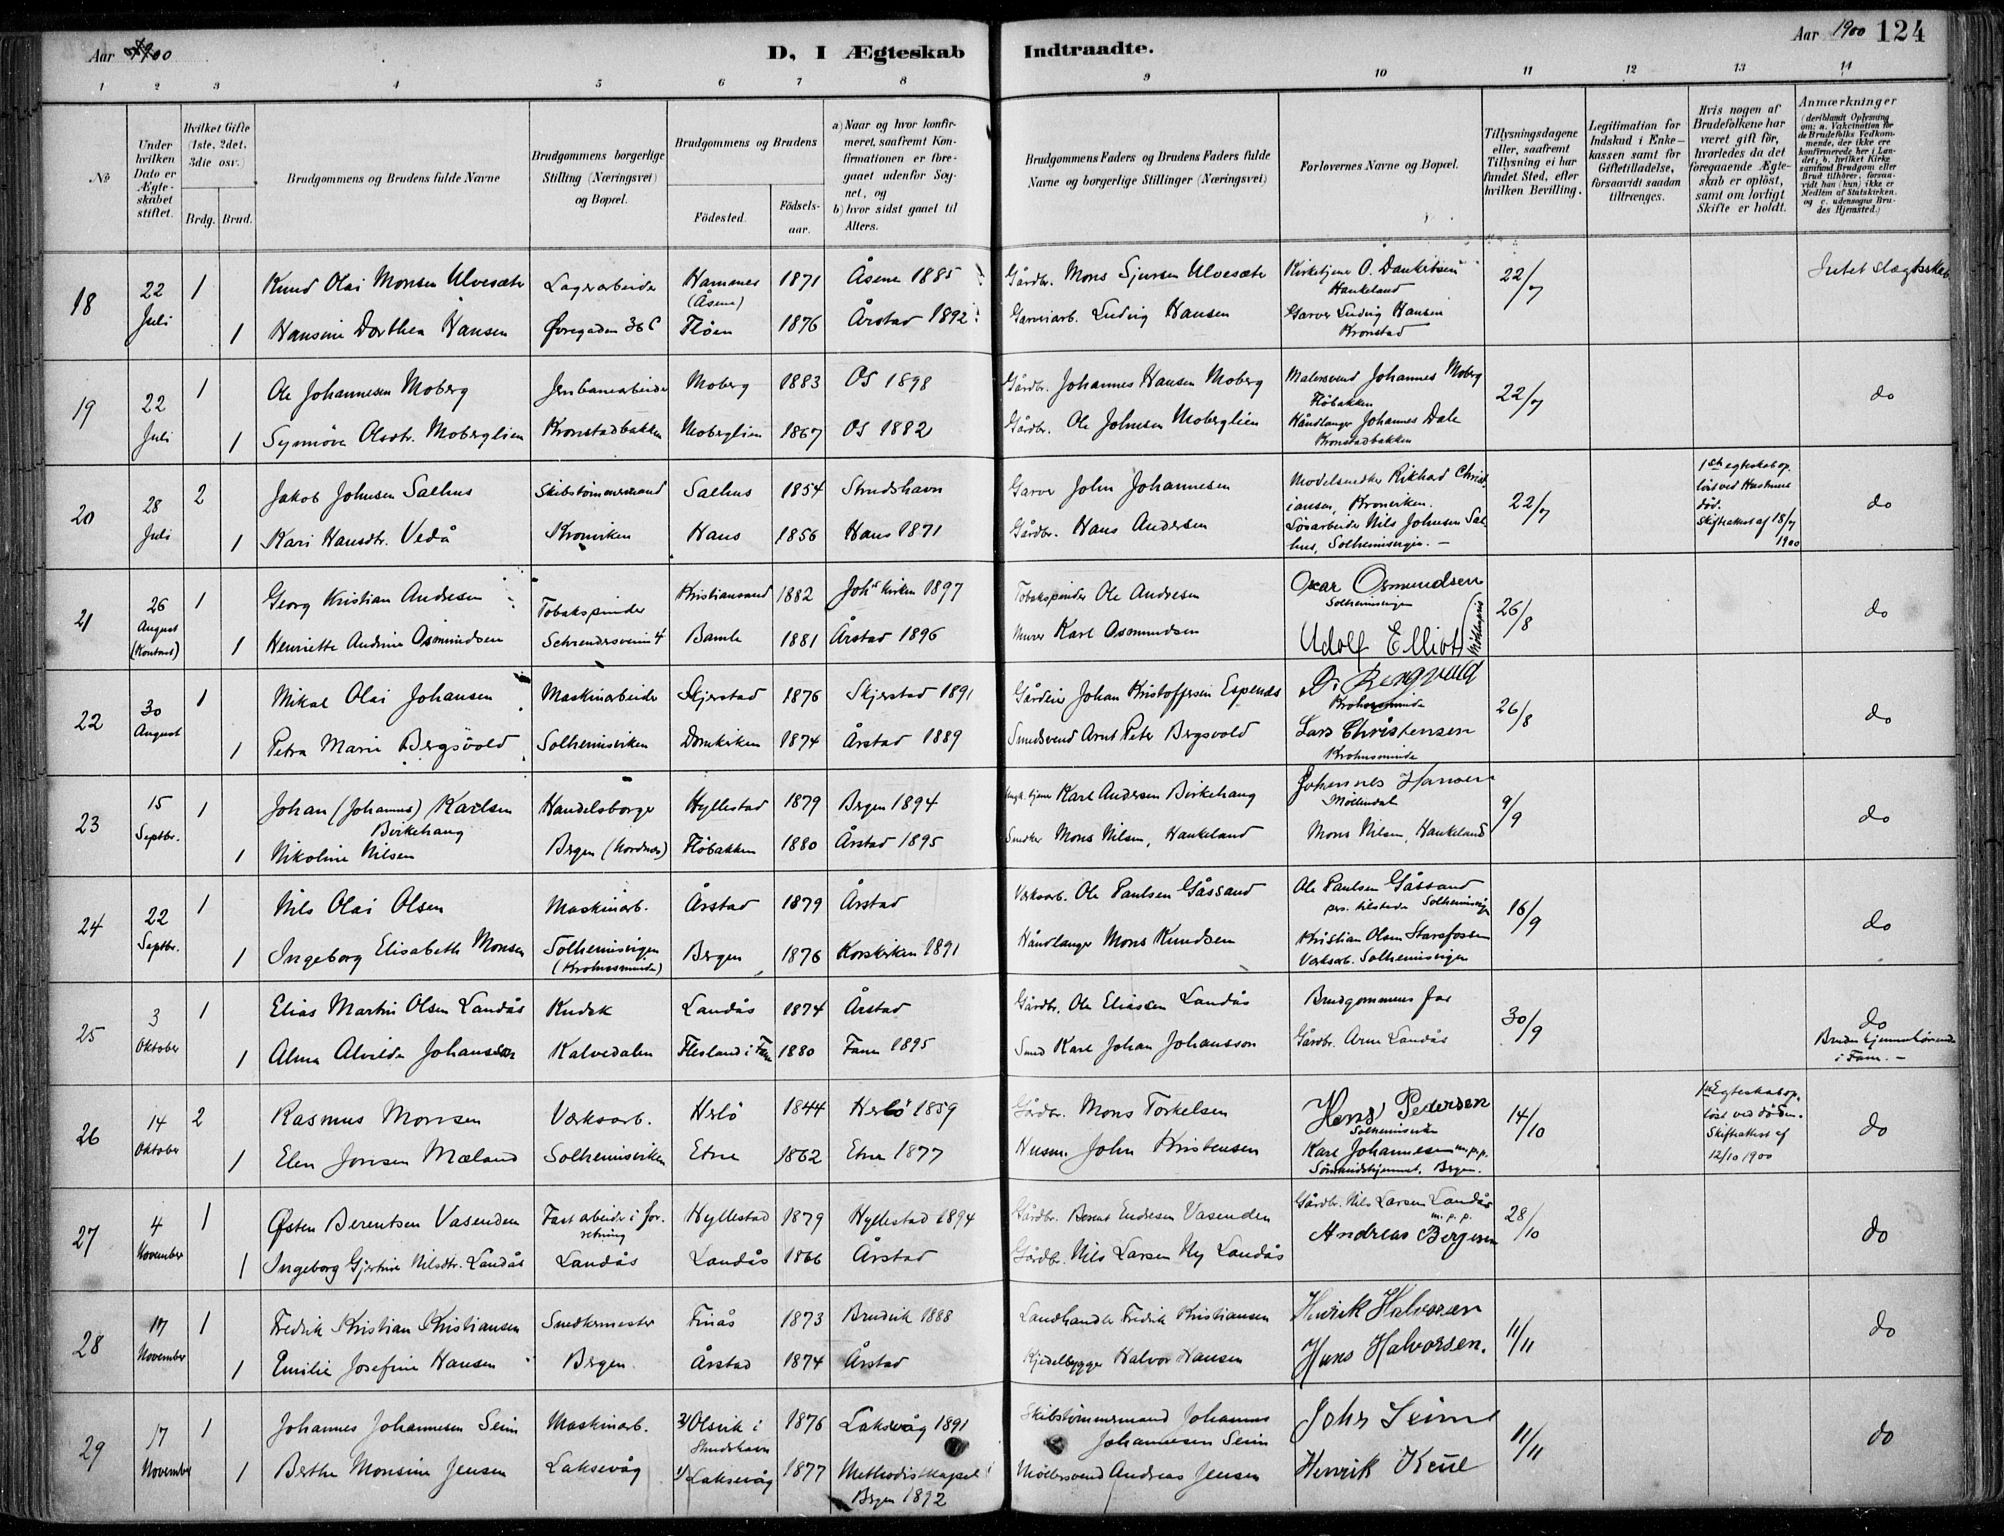 Aar 1900
D, I Ægteskab Indtraadte.
Aar 1900 124
1 2 3 4 5 6 7 8 9 10 11 12 13 14
No
Under hvilken Dato er Ægteskabet stiftet.
Hvilket Gifte (1ste, 2det, 3die osv.)
Brdg. Brud.
Brudgommens og Brudens fulde Navne
Brudgommens borgerlige Stilling (Næringsvei) og Bopæl.
Brudgommens og Brudens
Fødested. Fødsels-aar.
a) Naar og hvor konfirmeret, saafremt Konfirmationen er foregaaet udenfor Sognet, og
b) hvor sidst gaaet til Alters.
Brudgommens Faders og Brudens Faders fulde Navne og borgerlige Stillinger (Næringsvei)
Forlovernes Navne og Bopæl.
Tillysningsdagene eller, saafremt Tillysning ei har fundet Sted, efter hvilken Bevilling.
Legitimation for Indskud i Enkekassen samt for Giftetilladelse, forsaavidt saadan tiltrænges.
Hvis nogen af Brudefolkene har været gift før, hvorledes da det foregaaende Ægteskab er opløst, samt om lovligt Skifte er holdt.
Anmærkninger (deriblandt Oplysning om: a. Vakcination for de Brudefolks Vedkommende, der ikke ere konfirmerede her i Landet; b. hvilket Kirkesamfund Brudgom eller Brud tilhører, forsaavidt han (hun) ikke er Medlem af Statskirken, og c. udensogns Brudes Hjemsted.)
18 22 Juli 1 Knud Olai Monsen Ulvesæter Lagerarbeider Hammer (Åsene) 1871 Åsene 1885 Gårdbr. Mons Sjursen Ulvesæter Kirketjener O. Dankertsen Haukeland 22/7 Intet slægtsskab
1 Hansine Dorthea Hansen Øvregaden 36 C Fløen 1876 Årstad 1892 Garveriarb. Ludvig Hansen Garver Ludvig Hansen Kronstad
19 22 Juli 1 Ole Johannesen Moberg Jernbanearbeider Moberg 1883 Os 1898 Gårdbr. Johannes Hansen Moberg Malersvend Johannes Moberg Fløbakken 22/7 do
1 Synnøve Olsdtr. Moberglien Kronstadbakken Moberglien 1867 Os 1882 Gårdbr. Ole Johnsen Moberglien Håndlanger Johannes Dale Kronstadbakken
20 28 Juli 2 Jakob Johnsen Salhus Skibstømmermand Salhus 1854 Strudshavn Garver John Johannesen Modelsnedker Rikhard Christiansen, Kronviken. 22/7 1ste egteskab opløst ved Hustruens død. Skifteattest af 18/7 1900 do
1 Kari Hansdtr. Vedå Kronviken Haus 1856 Haus 1871 Gårdbr. Hans Andersen Løsarbeider Nils Johnsen Salhus, Solheimsvigen. -
21 26 August (Kontant) 1 Georg Kristian Andresen Tobakspinder Kristianssand 1882 Johs kirken 1897 Tobakspinder Ole Andresen Oscar Osmundsen Solheimsvigen 26/8 do
1 Henriette Andrine Osmundsen 4 Bamle 1881 Årstad 1896 Murer Karl Osmundsen Udolf Elliot Møhlenpris
22 30 August 1 Mikal Olai Johansen Maskinarbeider Skjerstad 1876 Skjerstad 1891 Gårdeier Johan Kristoffersen Espenes P. Bergsvold Krohnsminde 26/8 do
1 Petra Marie Bergsvold Solheimsviken Domkirken 1874 Årstad 1889 Smedsvend Arnt Peter Bergsvold Lars Christensen Krohnsminde
23 15 Septbr. 1 Johan (Johannes) Karlsen Birkehaug Handelsborger Hyllestad 1879 Bergen 1894 Karl Andersen Birkehaug Johannes Hansen Møllendal 9/9 do
1 Nikoline Nilsen Bergen (Nordnes) Fløbakken 1880 Årstad 1895 Snedker Mons Nilsen, Haukeland Mons Nilsen, Haukeland
24 22 Septbr. 1 Nils Olai Olsen Maskinarb. Årstad 1879 Årstad Værksarb. Ole Paulsen Gåssand Ole Paulsen Gåssand pers. tilstede Solheimsvigen 16/9 do
1 Ingeborg Elisabeth Monsen Solheimsvigen (Krohnsminde) Bergen 1876 Korskirken 1891 Håndlanger Mons Knudsen Kristian Olsen Storefossen Værksarb. Solheimsvigen
25 3 Oktober 1 Elias Martin Olsen Landås Kudsk Landås 1874 Årstad Gårdbr. Ole Eliassen Landås Brudgommens far 30/9 do
1 Alma Alvilde Johansson Kalvedalen Flesland i Fane 1880 Fane 1895 Smed Karl Johan Johansson Gårdbr. Arne Landås Bruden hjemmehørende i Fane. -
26 14 Oktober 2 Rasmus Monsen Værksarb. Herlø 1844 Herlø 1859 Gårdbr. Mons Torkelsen Hans Pedersen Solheimsviken 14/10 1ste Egteskab opløst ved døden. Skifteattest af 12/10 1900 do
1 Elen Jonsen Mæland Solheimsviken Etne 1862 Etne 1877 Husm. John Kristensen Karl Johannesen m.p.p. Sømandshjemmet, Bergen.
27 4 November 1 Østen Berentsen Vasenden Fast arbeide i forretning Hyllestad 1879 Hyllestad 1894 Gårdbr. Berent Endresen Vasenden Gårdbr. Nils Larsen Landås m.p.p. 28/10 do
1 Ingeborg Gjertine Nilsdtr. Landås Landås Landås 1866 Årstad Gårdbr. Nils Larsen Ny Landås Andreas Bergesen
28 17 November 1 Fredrik Kristian Kristiansen Snedkermester Finås 1873 Bruvik 1888 Landhandler Fredrik Kristiansen Henrik Halvorsen 11/11 do
1 Emilie Josefine Hansen Bergen. Årstad 1874 Årstad Kjedelbygger Halvor Hansen Hans Halvorsen.
29 17 November 1 Johannes Johannesen Seim Maskinarb. 2) Olsvik i Strudshavn 1876 Laksevåg 1891 Skibstømmermand Johannes Johannesen Seim Johs Seim 11/11 do
1 Berthe Monsine Jensen Laksevåg 1) Laksevåg 1877 Methodistkapel Bergen 1892 Møllersvend Andreas Jensen Henrik Keül